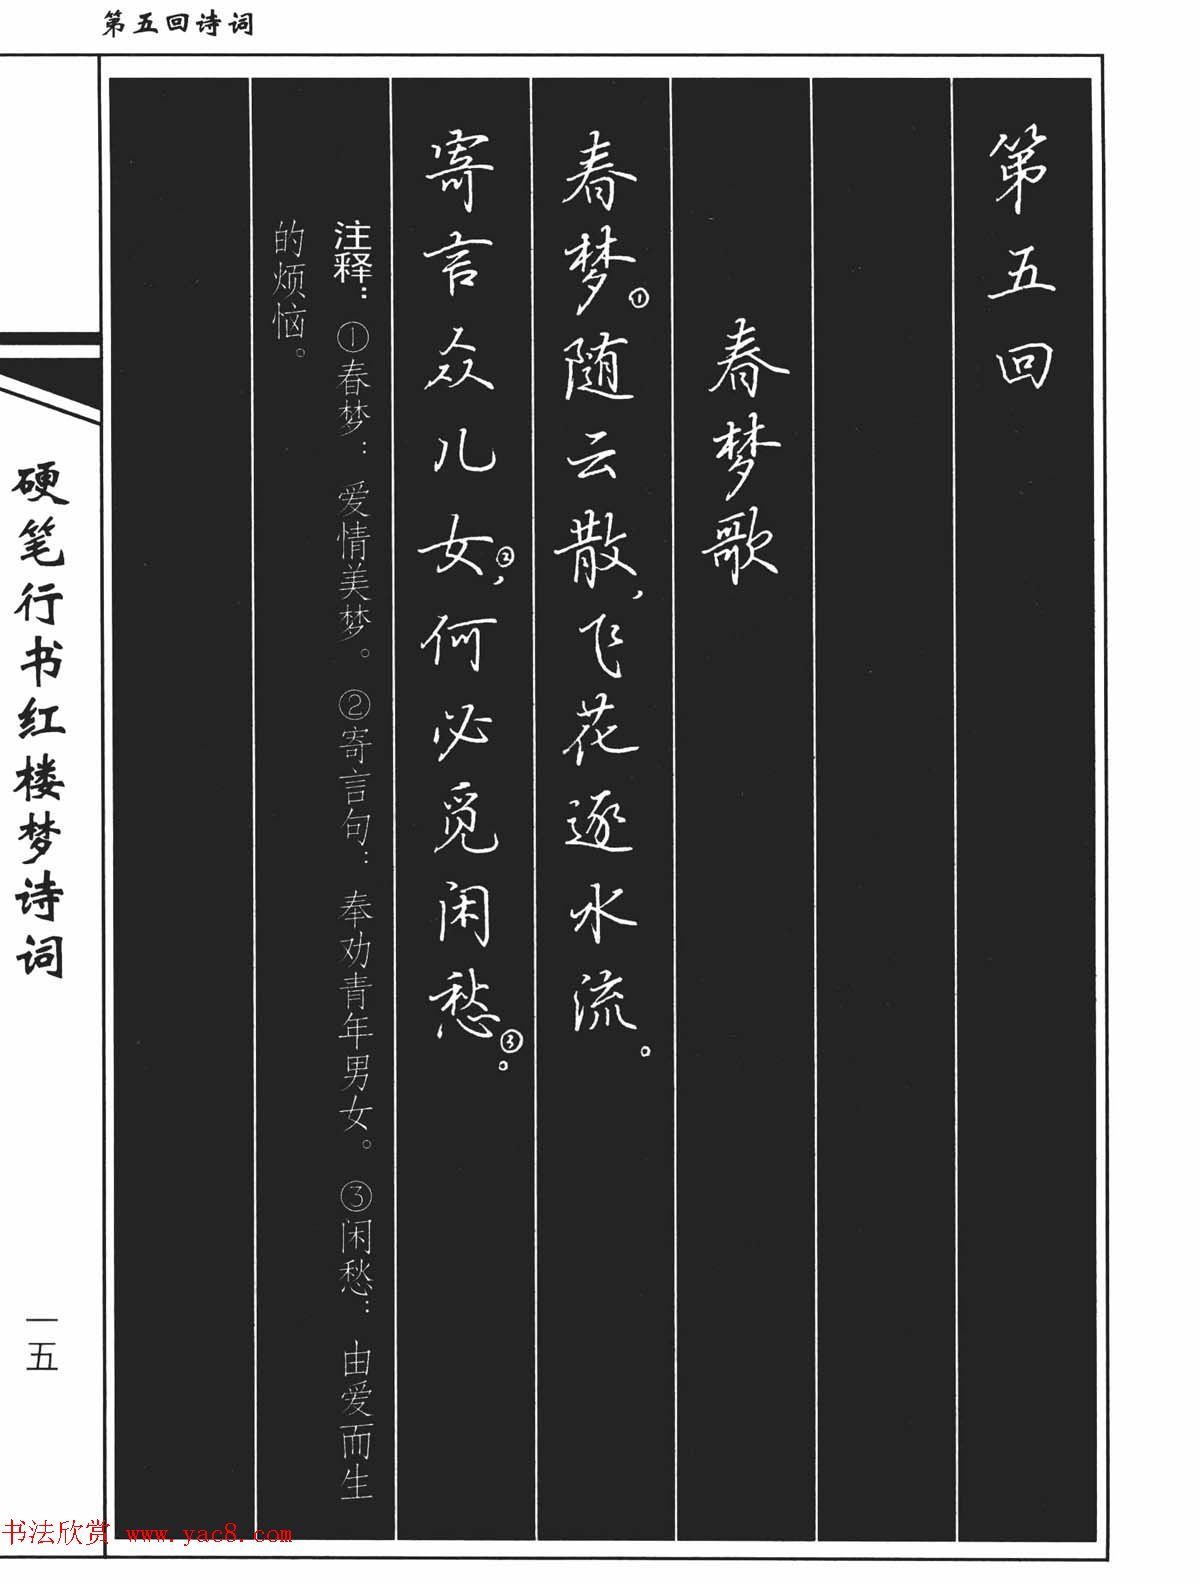 第五回诗词
第五回
春梦歌
春梦①随云散，飞花逐水流。
寄言众儿女②，何必觅闲愁③。
注释：①春梦：爱情美梦。②寄言句：奉劝青年男女。③闲愁：由爱而生
的烦恼。
硬笔行书红楼梦诗词
一五
书法欣赏 www.yac8.com